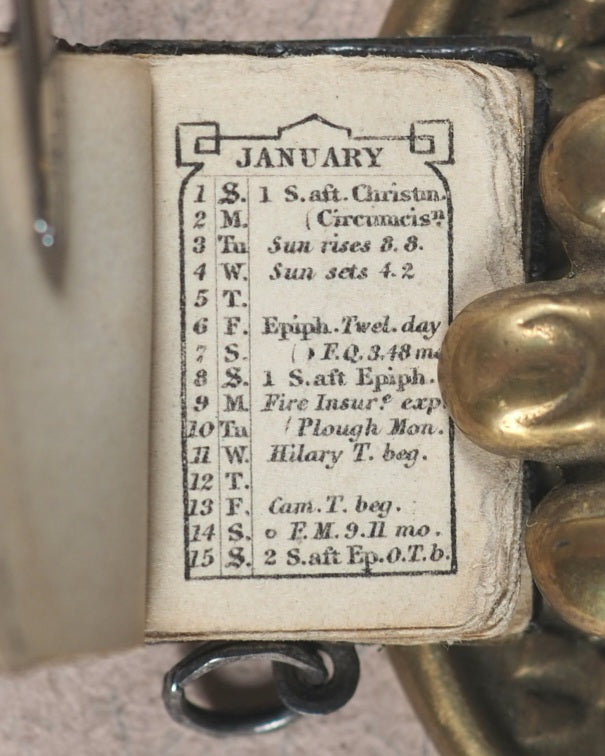 JANUARY
1 S. 1 S. aft. Christm.
2 M. (Circumcisn.
3 Tu Sun rises 8.8.
4 W. Sun sets 4.2
5 T.
6 F. Epiph. Twel. day
7 S. ( ☽ F.Q. 3.48 mo
8 S. 1 S. aft Epiph.
9 M. Fire Insur.e exp.
10 Tu (Plough Mon.
11 W. Hilary T. beg.
12 T.
13 F. Cam. T. beg.
14 S. o F.M. 9.11 mo.
15 S. 2 S. aft Ep. O.T.b.